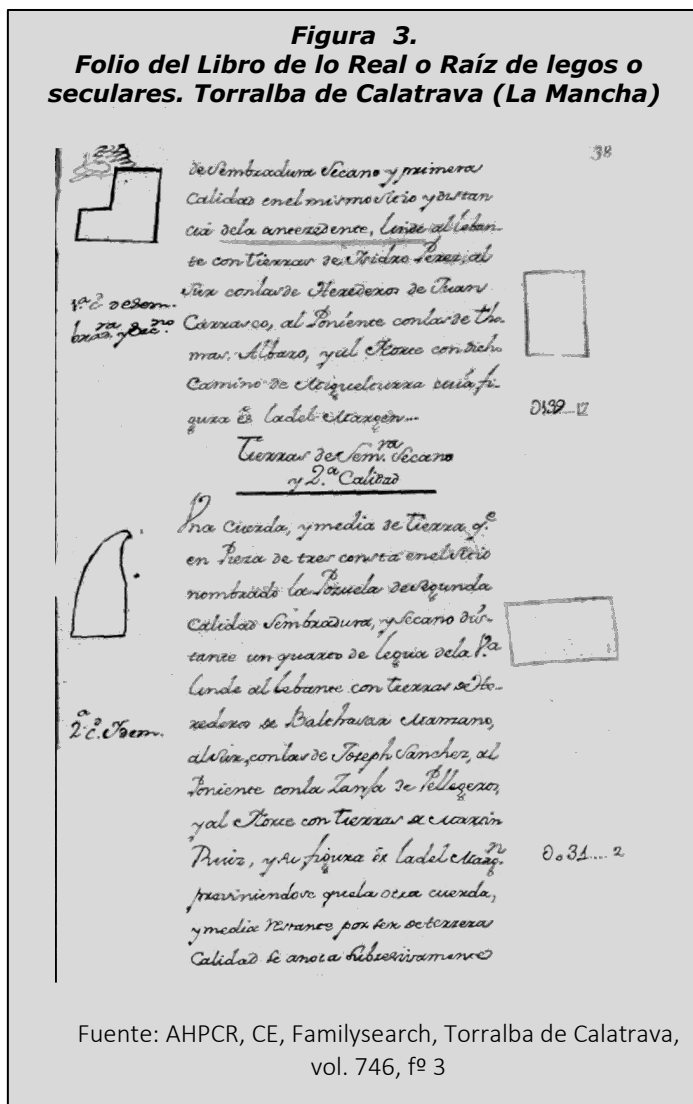 Figura 3.
Folio del Libro de lo Real o Raíz de legos o
seculares. Torralba de Calatrava (La Mancha)
38
de Sembradura Secano y primera
Calidad en el mismo sitio y distan
cia dela antezedente, linde al leban-
te con tierras de Isidro Perez, al
Sur con las de Herederos de Juan
Carrasco, al Poniente con las de tho-
mas Albaro, y al Norte con dicho
Camino de Miguelturra su fi-
gura es la del Margen
1ª C
Tierras de Sem.ra Secano
y 2.ª Calidad
Una Cuerda, y media de tierra q.e
en Pieza de tres consta en el sitio
nombrado la Pozuela de segunda
Calidad Sembradura, y Secano dis-
tante un quarto de legua dela V.a
linde al lebante con tierras de He-
rederos de Balthasar Manzano,
al Sur, con las de Joseph Sanchez, al
Poniente con la Zanja de Pellegero,
y al Norte con tierras de Martin
Ruiz, y su figura es la del Marg.n
previniendose que la otra cuerda,
y media restante por ser de terzera
Calidad se anota subcesivamente
2ª C. Idem.
0.31....2
Fuente: AHPCR, CE, Familysearch, Torralba de Calatrava,
vol. 746, fº 3